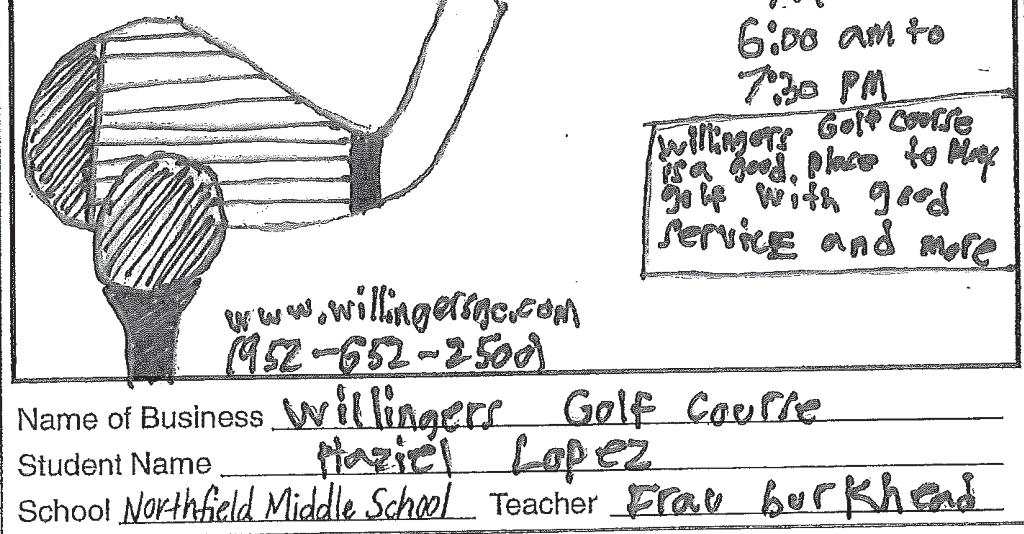 6:00 am to
7:30 PM
Willingers Golf course
is a good place to play
golf with good
service and more
www.willingersgc.com
(952-652-2500)
Name of Business Willingers Golf Course
Student Name Haziel Lopez
School Northfield Middle School Teacher Frau Burkhead